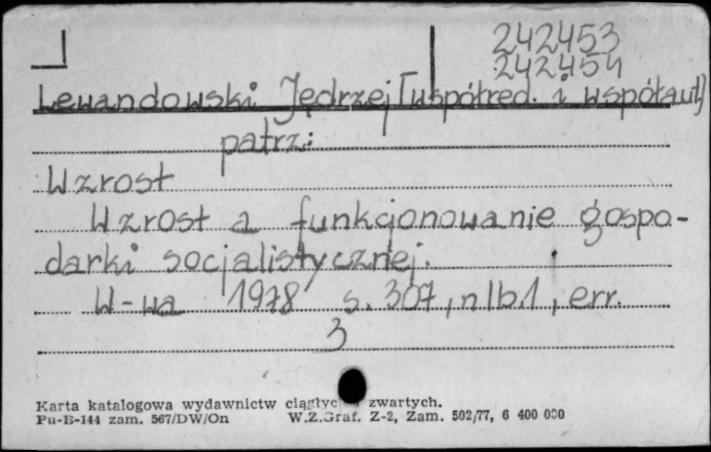 242453
242454
Lewandowski Jędrzej [współred. i współaut]
patrz:
Wzrost
Wzrost a funkcjonowanie gospo-
darki socjalistycznej.
W-wa 1978 s. 307, nlb.1, err.
3
Karta katalogowa wydawnictw zwartych.
Pu-B-144 zam. 567/DW/On W.Z.Graf. Z-2, Zam. 502/77, 6 400 000